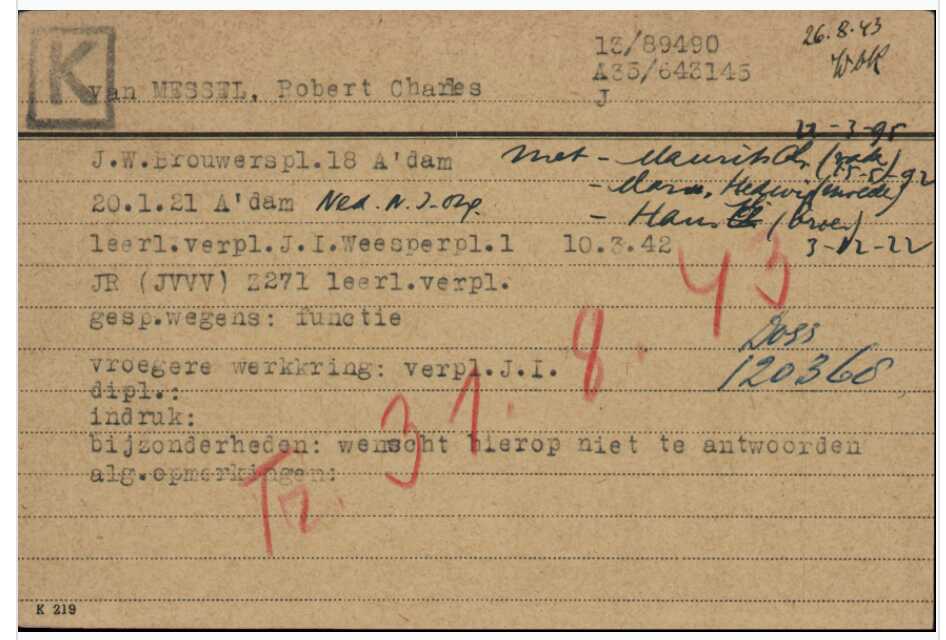 K
van MESSEL, Robert Charles
13/89490
A35/643145
J
26.8.43
Wbk
J.W.Brouwerspl.18 A'dam
22-3-95
met - Maurits Ch. (vader)
20.1.21 A'dam Ned. N.I.
15-5-92
- Hedwig (moeder)
- Hans (broer)
3-12-22
leerl.verpl.J.I.Weesperpl.1 10.3.42
JR (JVVV) Z271 leerl.verpl.
gesp.wegens: functie
Doss
120368
vroegere werkkring: verpl.J.I.
dipl.:
indruk:
bijzonderheden: wenscht hierop niet te antwoorden
alg.opmerkingen:
Tr. 31.8.43
K 219